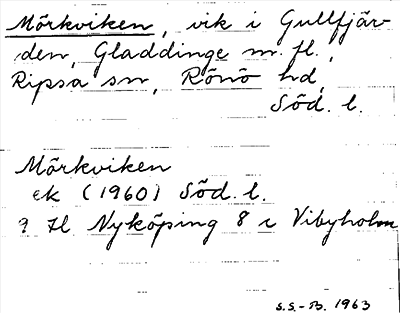 Mörkviken, vik i Gullfjär-
den, Gladdinge m. fl.,
Ripsa sn, Rönö hd,
Söd. l.
Mörkviken
ek (1960) Söd. l.
Fl Nyköping 8 c Vibyholm
S.S.-B. 1963